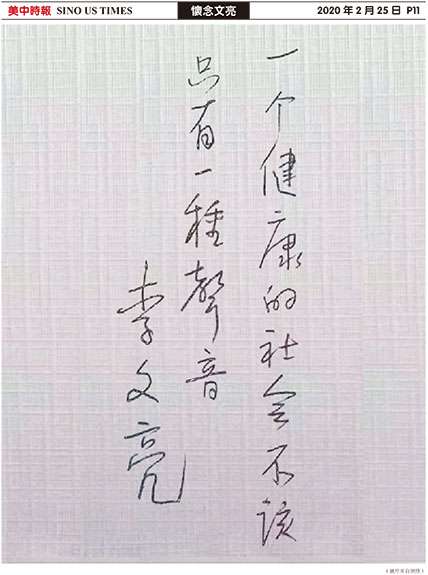 美中時報 SINO US TIMES
懷念文亮
2020 年 2 月 25 日 P11
一个健康的社会不该
只有一種聲音
李文亮